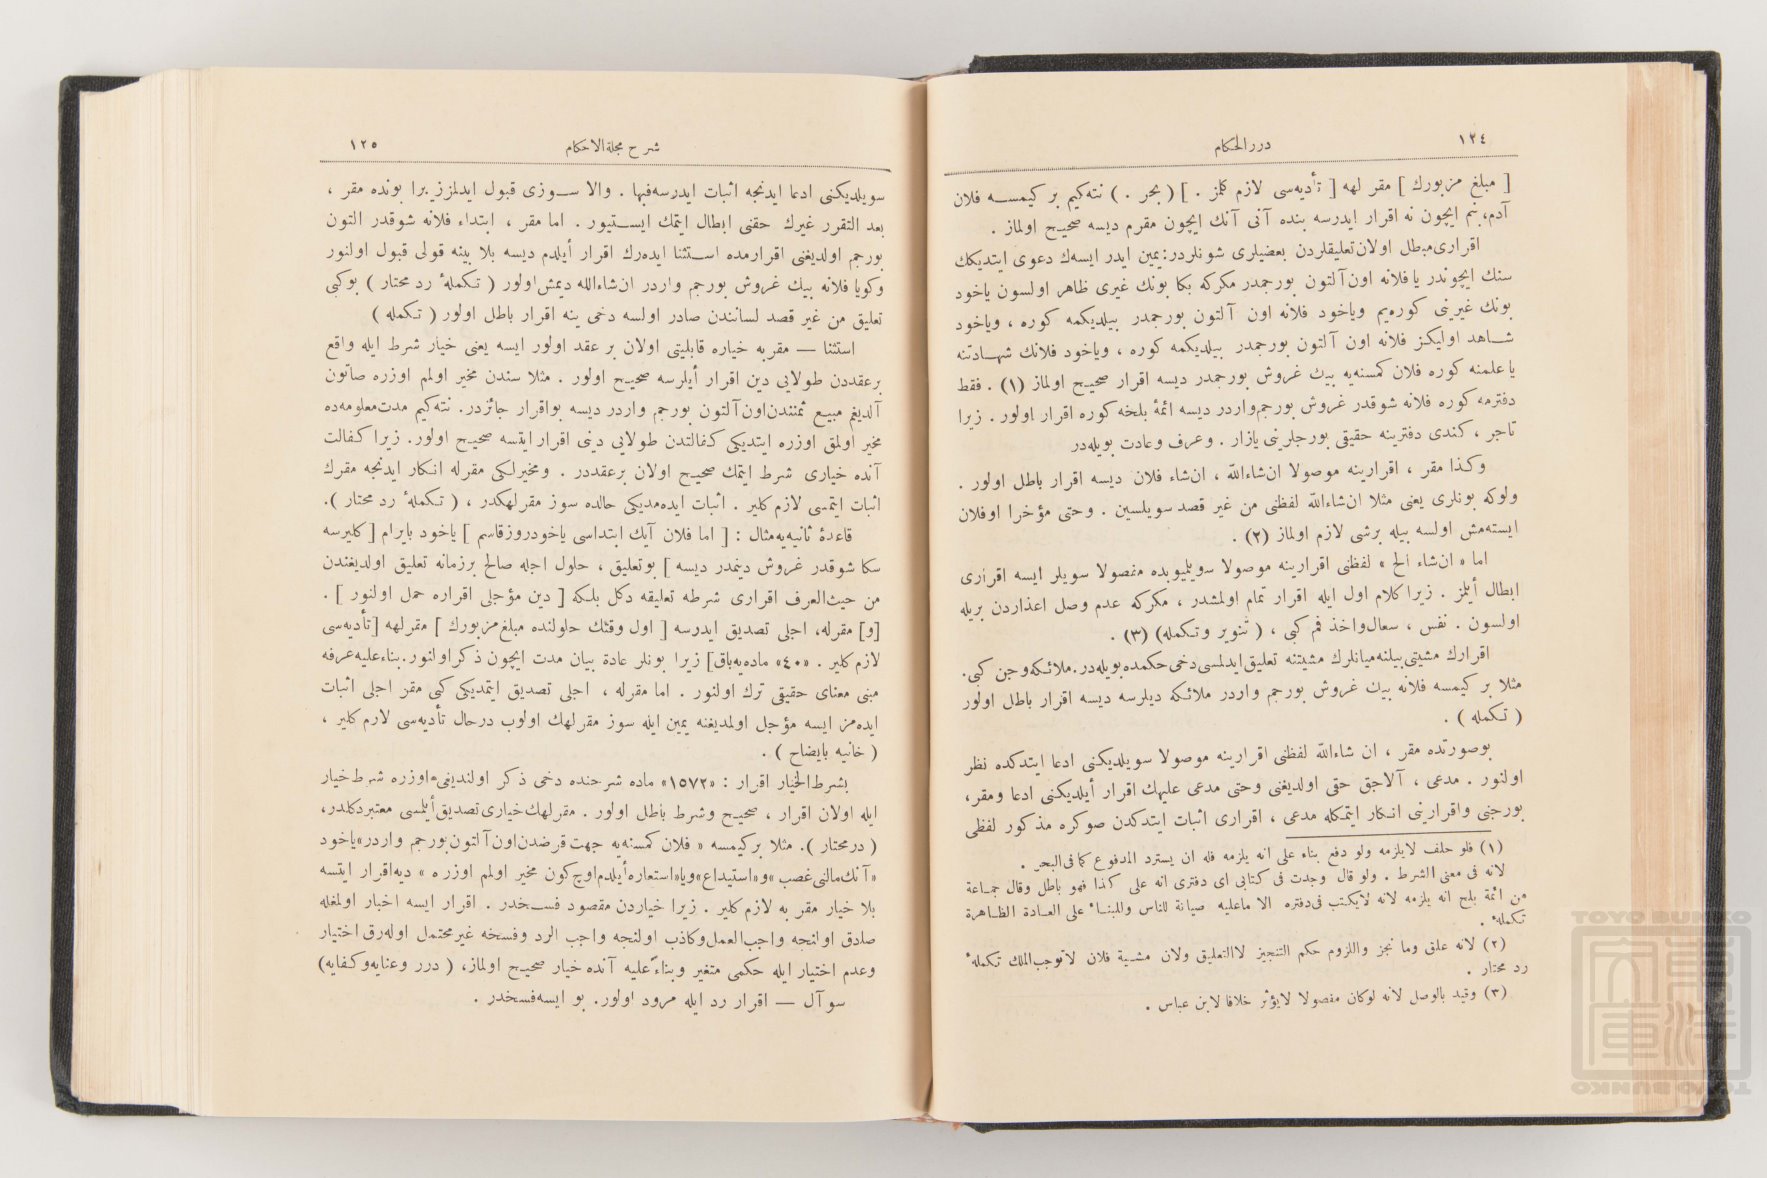 ١٢٤
دررالحکام
[ مبلغ مزبورك ] مقر لهه [ تأدیه‌سی لازم کلمز . ] ( بحر . ) نته‌کیم بر کیمســه فلان
آدم، بنم ایچون نه اقرار ایدرسه بنده آنی آنك ایچون مقرم دیسه صحیح اولماز .
اقراری‌مبطل اولان‌تعلیقلردن بعضیلری شونلردر: یمین ایدر ایسه‌ك دعوی ایتدیکك
سنك ایچوندر یا فلانه اون‌آلتون بورجمدر مکرکه بکا بونك غیری ظاهر اولسون یاخود
بونك غیرینی کوره‌یم ویاخود فلانه اون آلتون بورجمدر بیلدیکمه کوره ، ویاخود
شــاهد اولیکز فلانه اون آلتون بورجمدر بیلدیکمه کوره ، ویاخود فلانك شهــادتنه
یا علمنه کوره فلان کمسنه‌یه بیك غروش بورجمدر دیسه اقرار صحیح اولماز (١) . فقط
دفترمه کوره فلانه شوقدر غروش بورجم‌واردر دیسه ائمۀ بلخه کوره اقرار اولور . زیرا
تاجر ، کندی دفترینه حقیقی بورجلرینی یازار . وعرف وعادت بویله‌در
وکذا مقر ، اقرارینه موصولا ان‌شاءالله ، ان‌شاء فلان دیسه اقرار باطل اولور .
ولوکه بونلری یعنی مثلا ان‌شاءالله لفظنی من غیر قصد سویلسین . وحتی مؤخرا اوفلان
ایسته‌مش اولسه بیله برشی لازم اولماز (٢) .
اما « ان‌شاء الخ » لفظنی اقرارینه موصولا سویلمیوبده مفصولا سویلر ایسه اقراری
ابطال أیلمز . زیرا کلام اول ایله اقرار تمام اولمشدر ، مکرکه عدم وصل اعذاردن بریله
اولسون . نفس ، سعال‌واخذ فم کبی ، ( تنویر وتکمله ) (٣) .
اقرارك مشیتی بیلنه‌میانلرك مشیتنه تعلیق‌ایدلمسی‌دخی‌حکمده‌بویله‌در. ملائکه‌وجن کبی.
مثلا بر کیمسه فلانه بیك غروش بورجم واردر ملائکه دیلرسه دیسه اقرار باطل اولور
( تکمله ) .
بوصورتده مقر ، ان شاءالله لفظنی اقرارینه موصولا سویلدیکنی ادعا ایتدکده نظر
اولنور . مدعی ، آلاجق حقی اولدیغنی وحتی مدعی علیهك اقرار أیلدیکنی ادعا ومقر،
بورجنی واقرارینی انکار ایتمکله مدعی ، اقراری اثبات ایتدکدن صوکره مذکور لفظی
(١) فلو حلف لایلزمه ولو دفع بناء علی انه یلزمه فله ان یسترد المدفوع کما فی‌البحر .
لانه فی معنی الشرط . ولو قال وجدت فی کتابی ای دفتری انه علی کذا فهو باطل وقال جمــاعة
من ائمة بلخ انه یلزمه لانه لایکتب فی‌دفتره الا ماعلیه صیانة للناس وللبنــاء علی العــادة الظــاهرة
تکمله .
(٢) لانه علق وما نجز واللزوم حکم التنجیز لاالتعلیق ولان مشــیة فلان لاتوجب‌الملك تکملهٔ
رد محتار .
(٣) وقید بالوصل لانه لوکان مفصولا لایؤثر خلافا لابن عباس .
شرح مجلة‌الاحکام
١٢٥
سویلدیکنی ادعا ایدنجه اثبات ایدرسه‌فبها . والا ســوزی قبول ایدلمز زیرا بونده مقر ،
بعد التقرر غیرك حقنی ابطال ایتمك ایســتیور . اما مقر ، ابتداء فلانه شوقدر التون
بورجم اولدیغنی اقرارمده اســتثنا ایده‌رك اقرار أیلدم دیسه بلا بینه قولی قبول اولنور
وکویا فلانه بیك غروش بورجم واردر ان‌شاءالله دیمش‌اولور ( تکملهٔ رد محتار ) بوکبی
تعلیق من غیر قصد لسانندن صادر اولسه دخی ینه اقرار باطل اولور ( تکمله )
استثنا — مقربه خیاره قابلیتی اولان بر عقد اولور ایسه یعنی خیار شرط ایله واقع
برعقددن طولایی دین اقرار أیلرسه صحیح اولور . مثلا سندن مخیر اولم‌م اوزره صاتون
آلدیغم مبیع ثمنندن‌اون‌آلتون بورجم واردر دیسه بواقرار جائزدر. نته‌کیم مدت‌معلومه‌ده
مخیر اولمق اوزره ایتدیکی کفالتدن طولایی دینی اقرار ایتسه صحیح اولور. زیرا کفالت
آنده خیاری شرط ایتمك صحیح اولان برعقددر . ومخیرلکی مقرله انکار ایدنجه مقرك
اثبات ایتمسی لازم کلیر . اثبات ایده‌مدیکی حالده سوز مقرلهکدر ، ( تکملهٔ رد محتار ).
قاعدۀ ثانیه‌یه‌مثال : [ اما فلان آیك ابتداسی یاخودروزقاسم ] یاخود بایرام [ کلیرسه
سکا شوقدر غروش دینمدر دیسه ] بوتعلیق ، حلول اجله صالح برزمانه تعلیق اولدیغندن
من حیث‌العرف اقراری شرطه تعلیقه دکل بلکه [ دین مؤجلی اقراره حمل اولنور ] .
[و] مقرله، اجلی تصدیق ایدرسه [ اول وقتك حلولنده مبلغ مزبورك ] مقرلهه [تأدیه‌سی
لازم کلیر . «٤٠» ماده‌یه‌باق] زیرا بونلر عادة بیان مدت ایچون ذکر اولنور. بناءعلیه‌عرفه
مبنی معنای حقیقی ترك اولنور . اما مقرله ، اجلی تصدیق ایتمدیکی کبی مقر اجلی اثبات
ایده‌مز ایسه مؤجل اولمدیغنه یمین ایله سوز مقرلهك اولوب درحال تأدیه‌سی لازم کلیر ،
( خانیه بایضاح ) .
بشرط‌الخیار اقرار : «١٥٧٢» ماده شرحنده دخی ذکر اولندیغی‌اوزره شرط خیار
ایله اولان اقرار ، صحیح وشرط باطل اولور . مقرلهك‌خیاری‌تصدیق‌أیلمسی معتبردکلدر،
( درمختار ). مثلا برکیمسه « فلان کمسنه‌یه جهت قرضدن‌اون‌آلتون‌بورجم واردر» یاخود
«آنك‌مالنی‌غصب» و «استیداع» ویا «استعاره‌أیلدم اوچ‌کون مخیر اولم‌م اوزره » دیه‌اقرار ایتسه
بلا خیار مقر به لازم کلیر . زیرا خیاردن مقصود فســخدر . اقرار ایسه اخبار اولمغله
صادق اولنجه واجب‌العمل‌وکاذب اولنجه واجب الرد وفسخه غیرمحتمل اوله‌رق اختیار
وعدم اختیار ایله حکمی متغیر وبناءً علیه آنده خیار صحیح اولماز، ( درر وعنایه‌وکفایه)
سوآل — اقرار رد ایله مردود اولور. بو ایسه‌فسخدر .
TOYO BUNKO